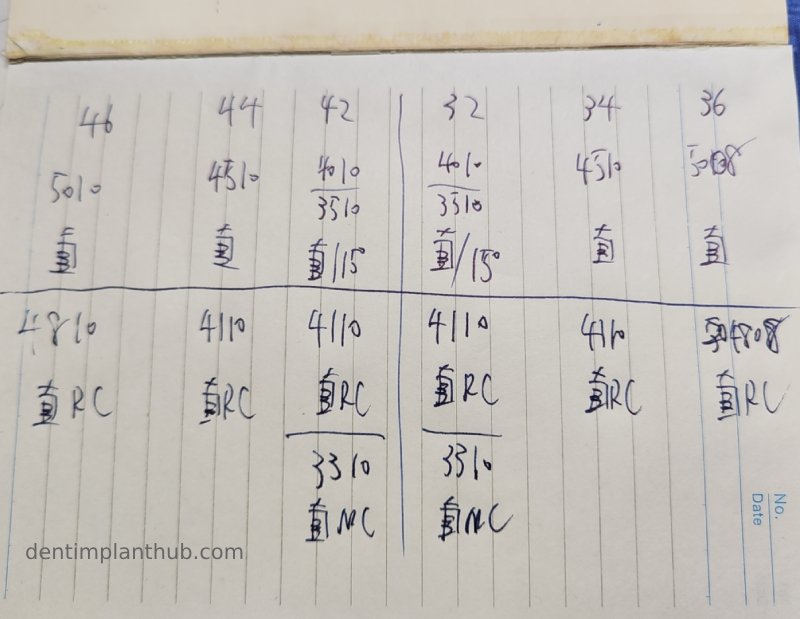 46 44 42 32 34 36
5010 4510 4010 4010 4510
3510 3510
直 直 直/15° 直/15° 直 直
4810 4110 4110 4110 4110 4808
直RC 直RC 直RC 直RC 直RC 直RC
3310 3310
直NC 直NC
No.
Date
dentimplanthub.com